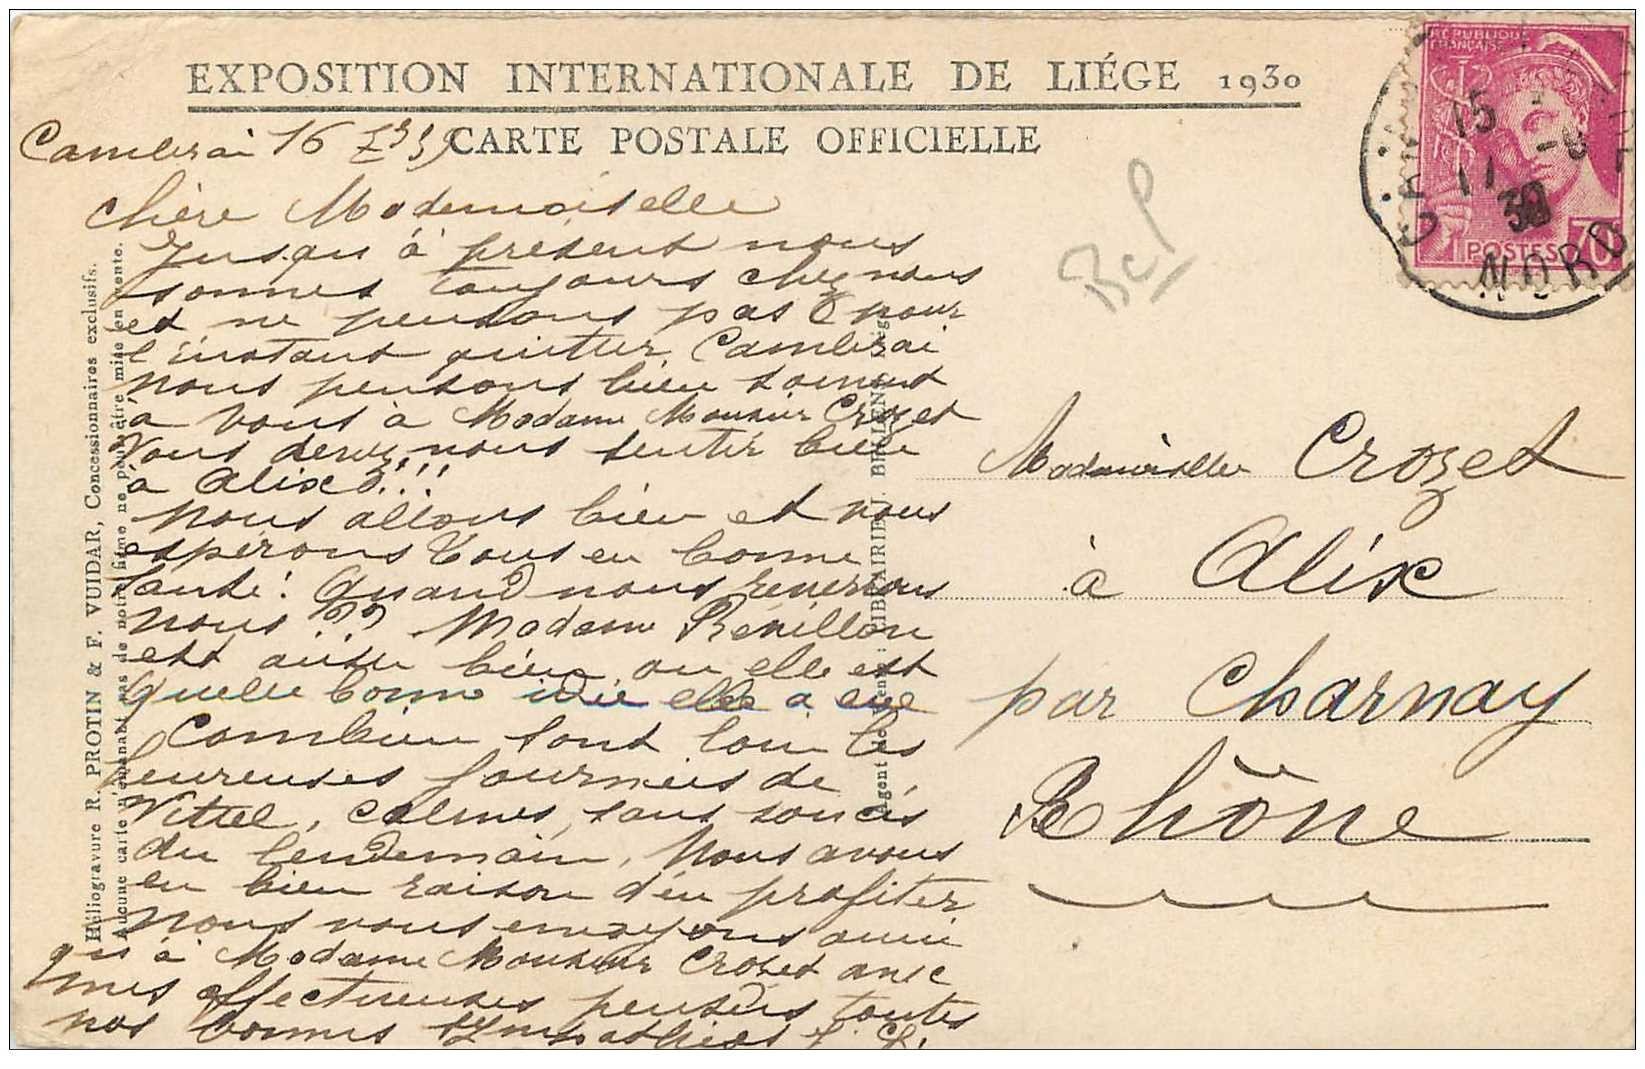 EXPOSITION INTERNATIONALE DE LIÉGE 1930
CARTE POSTALE OFFICIELLE
Cambrai 16 39
Chère Mademoiselle
Jusqu'à présent nous
sommes toujours chez nous
et ne pensons pas pour
l'instant quitter Cambrai
nous pensons bien souvent
à vous à Madame Monsieur Crozet
Vous devez nous sentir bien
à Alix !!!
Nous allons bien et vous
espérons tous en bonne
santé! Quand nous reverrons
nous ?? Madame Révillon
est aussi bien où elle est
quelle bonne idée elle a eue
Combien sont loin les
heureuses journées de
Vittel, calmes, sans soucis
du lendemain. Nous avons
eu bien raison d'en profiter
Nous vous envoyons ainsi
qu'à Madame Monsieur Crozet avec
mes affectueuses pensées toutes
nos bonnes sympathies
Héliogravure R. PROTIN & F. VUIDAR, Concessionnaires exclusifs.
Aucune carte n'émanant pas de notre firme ne peut être mise en vente.
Agent de vente : LIBRAIRIE J. BELLENS, Liége
RÉPUBLIQUE
FRANÇAISE
POSTES 70
15
11 -9
39
NORD
BcP
Mademoiselle Crozet
à Alix
par Charnay
Rhône